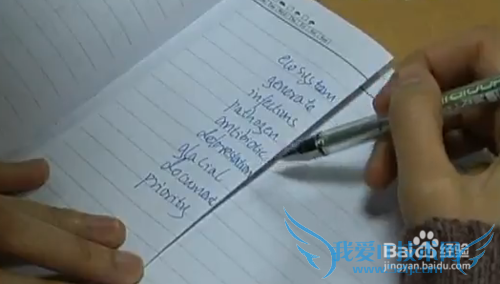 ecosystem
generate
infectious
pathogen
antibiotic
deforestation
glacial
document
priority
Baidu 经验
jingyan.baidu.com